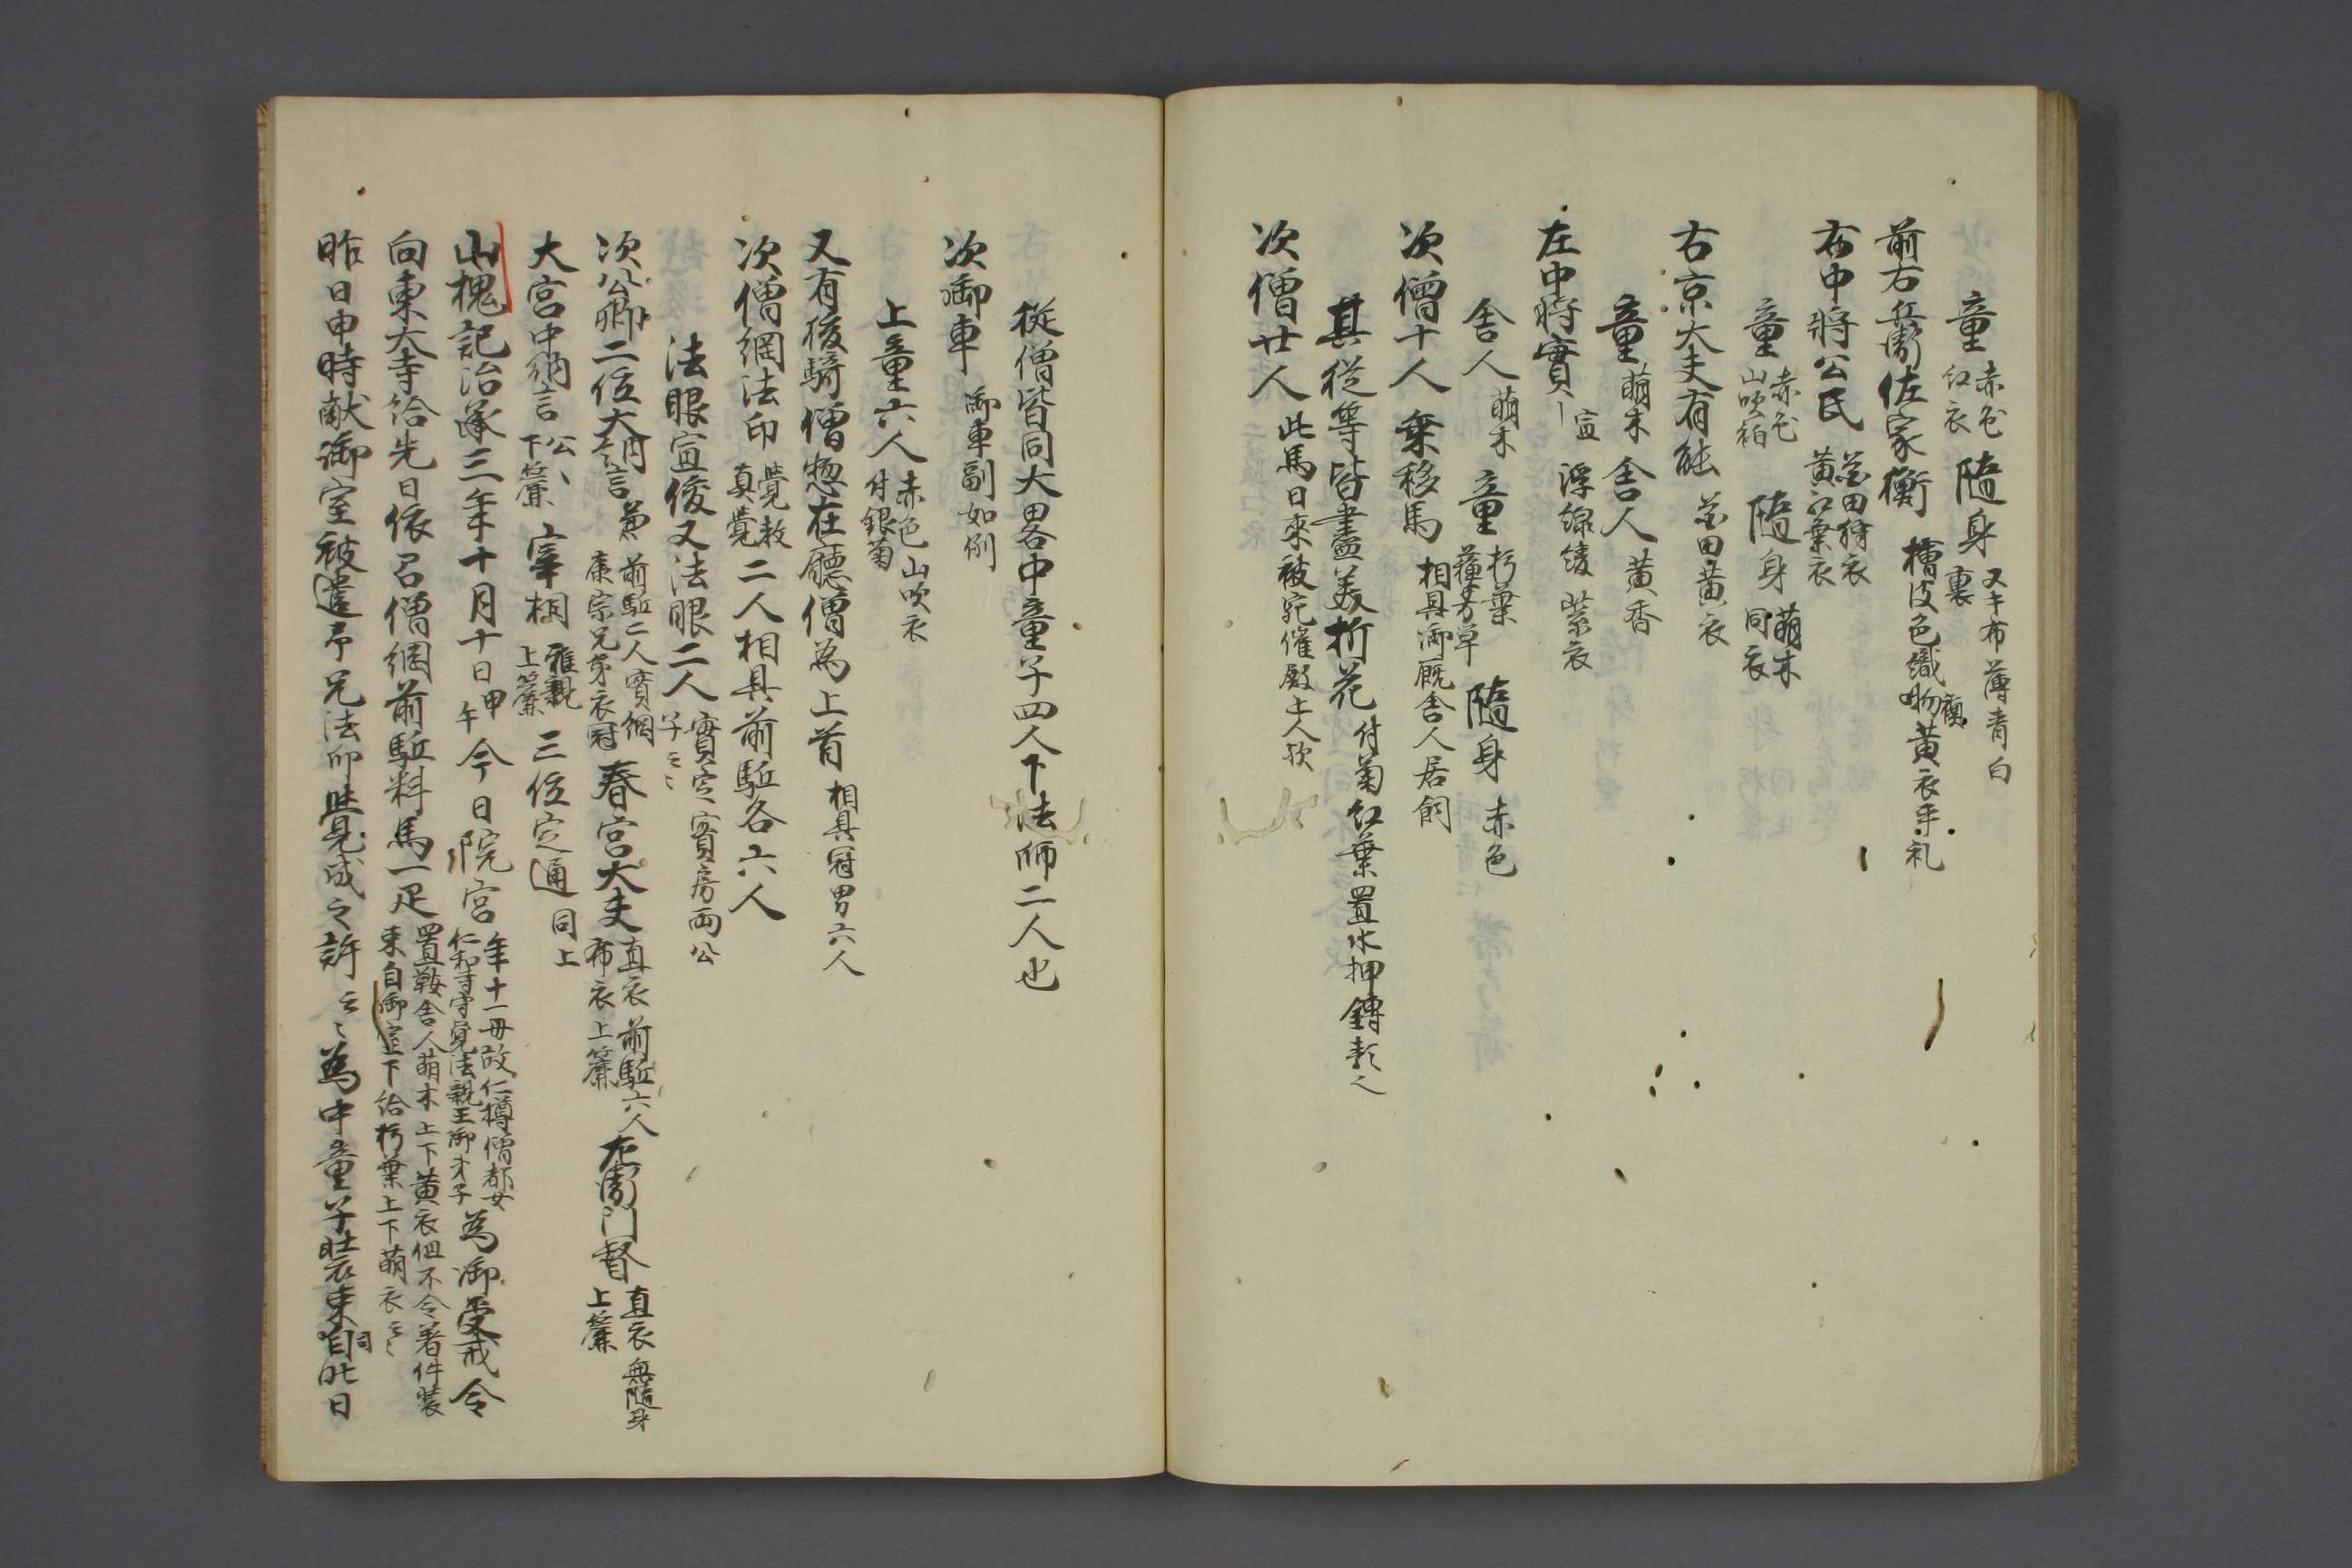 童 赤色 紅衣 隨身 又キ布薄青白裏
前右兵衛佐家衡 檜皮色織物 黄衣
右中將公氏 狩衣 黄紅葉衣
童 赤色 山吹袙 隨身 萌木 同衣
右京大夫有能 黄衣
童 萌木 舍人 黄香
左中將實宣 浮線綾 紫衣
舍人 萌木 童 朽葉 隨身 赤色
次僧十人 乗移馬 相具御厩舍人居飼
其從等皆盡美折花 付菊紅葉置水押鏄
次僧廿人 此馬日來被宛催殿上人歟
從僧皆同大畧中童子四人下法師二人也
次御車 御車副如例
上童六人 赤色山吹衣 付銀菊
又有後騎僧惣在廳僧為上首 相具冠男六人
次僧綱法印 覺教 真覺 二人相具前駈各六人
法眼宣俊又法眼二人 實定實房両公子云々
次公卿二位大納言 前駈二人實綱康宗兄弟衣冠 春宮大夫 直衣前駈六人布衣上簾 右衛門督 直衣無隨身上簾
大宮中納言 公下簾 宰相 雅親上簾 三位定通 同上
山槐記治承三年十月十日 甲午 今日院宮 年十一母故仁操僧都女仁和寺守覺法親王御弟子 為御受戒令
向東大寺給先日依召僧綱前駈料馬一疋 置鞍舍人萌木上下黄衣但不令著件装束自御室下給朽葉上下萌衣云々
昨日申時献御室被遣予兄法印覺成之許云々為中童子装束自昨日